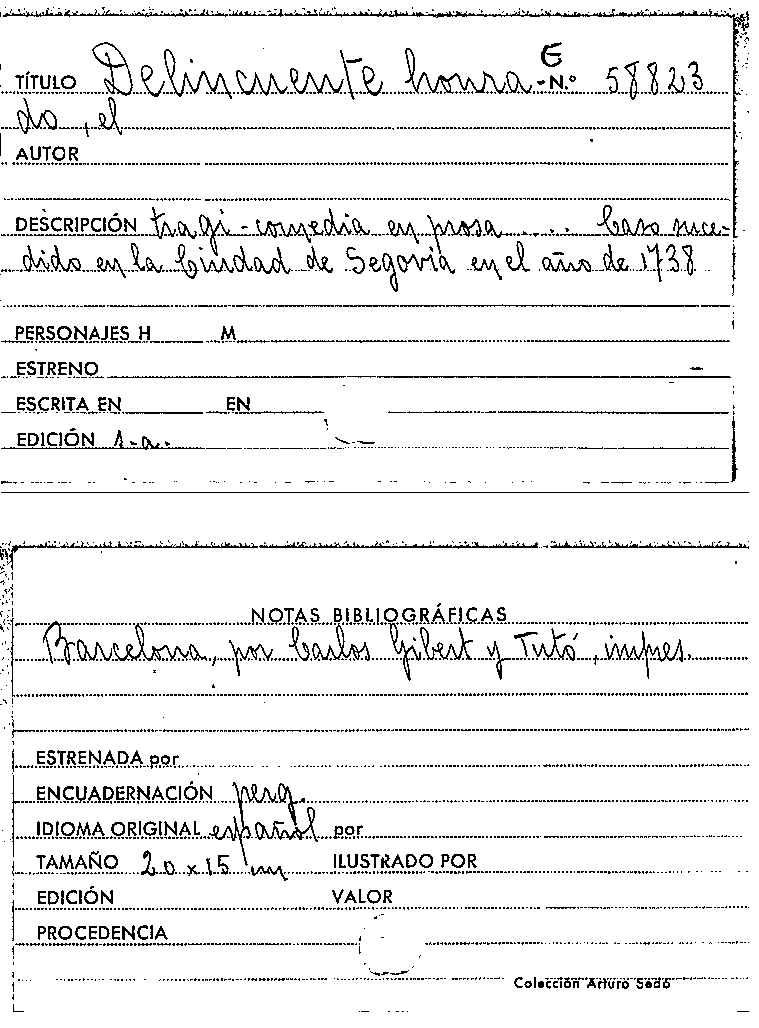 E
TÍTULO Delincuente honra- N.º 58823
do, el
AUTOR
DESCRIPCIÓN tragi-comedia en prosa .... Caso suce-
dido en la Ciudad de Segovia en el año de 1738
PERSONAJES H M
ESTRENO
ESCRITA EN EN
EDICIÓN s.a.
NOTAS BIBLIOGRÁFICAS
Barcelona, por Carlos Gibert y Tutó, impres.
ESTRENADA por
ENCUADERNACIÓN perg.
IDIOMA ORIGINAL español por
TAMAÑO 20 x 15 cm ILUSTRADO POR
EDICIÓN VALOR
PROCEDENCIA
Colección Arturo Sedó